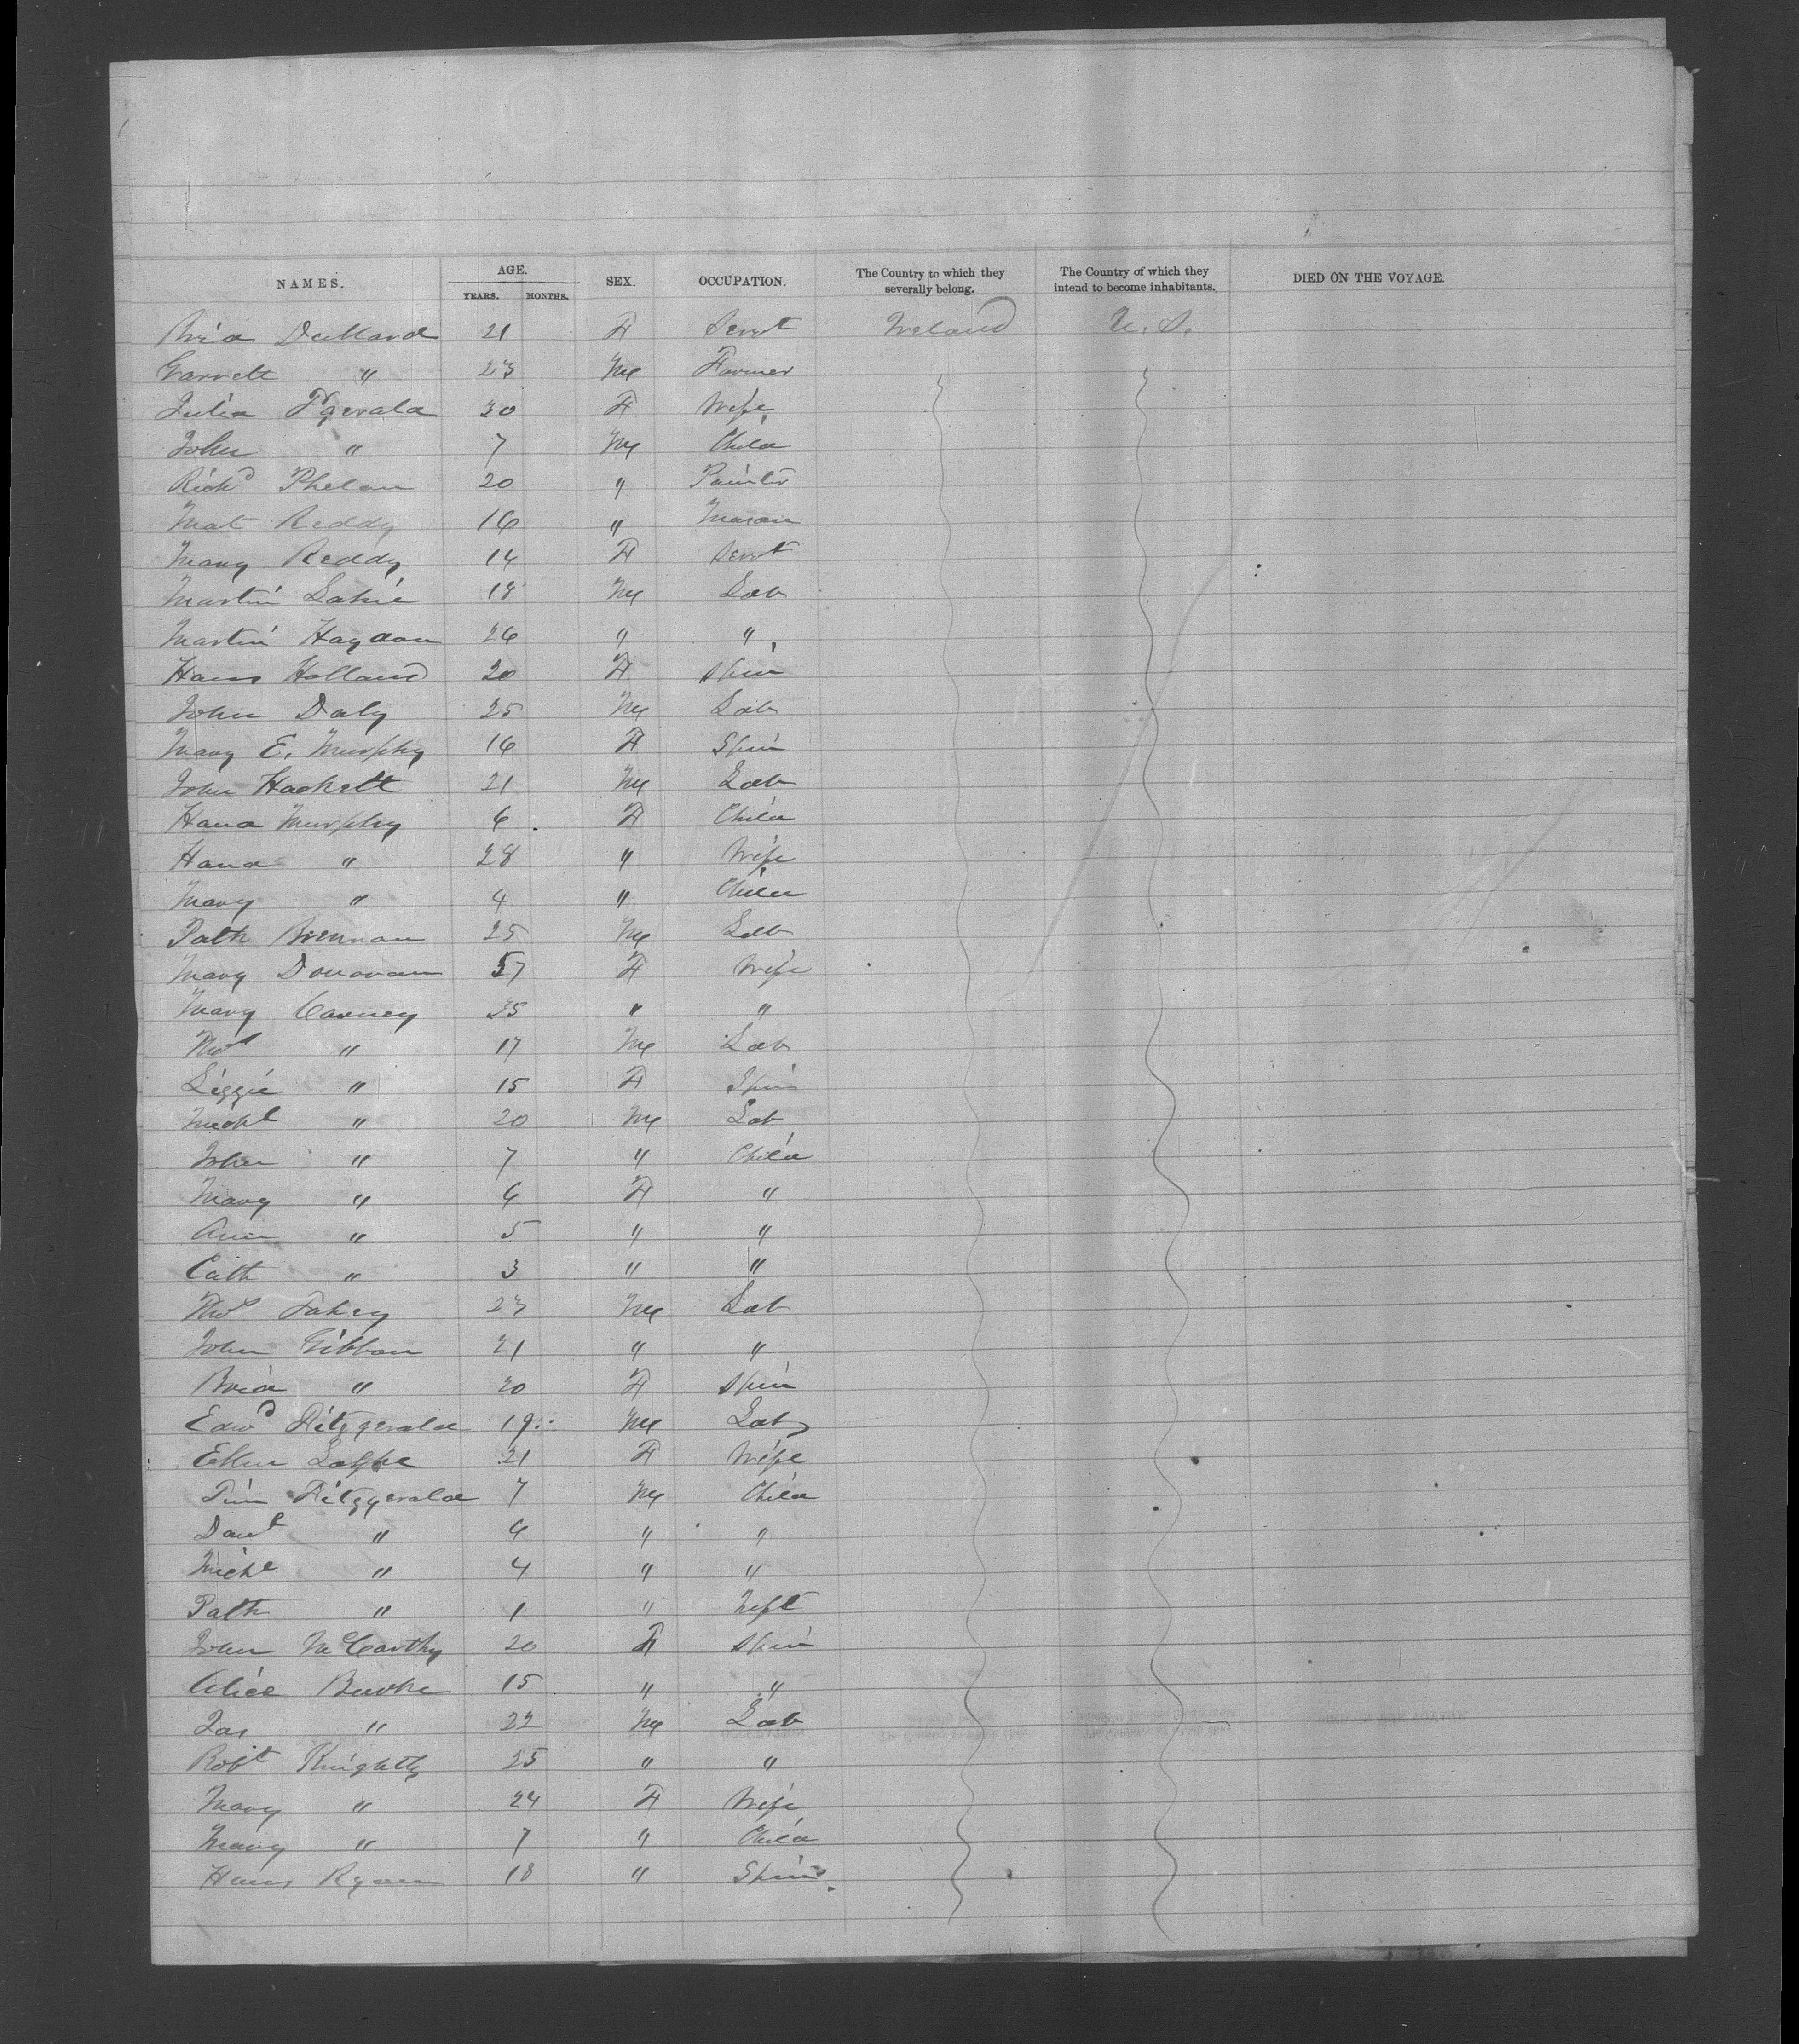 NAMES. AGE. YEARS. MONTHS. SEX. OCCUPATION. The Country to which they severally belong. The Country of which they intend to become inhabitants. DIED ON THE VOYAGE.
Brid Dullard 21 F Servt Ireland U.S.
Garrett " 23 M Farmer
Julia F'gerald 30 F Wife
John " 7 M Child
Richd Phelan 20 " Painter
Mat Reddy 16 " Mason
Mary Reddy 14 F Servt
Martin 18 M Lab
Martin Haydon 26 " "
Hans Holland 20 F Spin
John Daly 25 M Lab
Mary E. Murphy 16 F Spin
John Hackett 21 M Lab
Hana Murphy 6 F Child
Hana " 28 " Wife
Mary " 4 " Child
Patk Brennan 25 M Lab
Mary Donovan 57 F Wife
Mary Carney 35 " "
Thos " 17 M Lab
Lizzie " 15 F Spin
Michl " 20 M Lab
John " 7 " Child
Mary " 6 F "
Ann " 5 " "
Cath " 3 " "
Thos Fahey 23 M Lab
John Gibbon 21 " "
Brid " 20 F Spin
Edwd Fitzgerald 19 M Lab
Ellen 21 F Wife
Tim Fitzgerald 7 M Child
Danl " 6 " "
Michl " 4 " "
Patk " 1 " Inft
John McCarthy 20 F Spin
Alice Burke 15 " "
Jas " 22 M Lab
Robt Knightly 25 " "
Mary " 24 F Wife
Mary " 7 " Child
Hans Ryan 18 " Spin